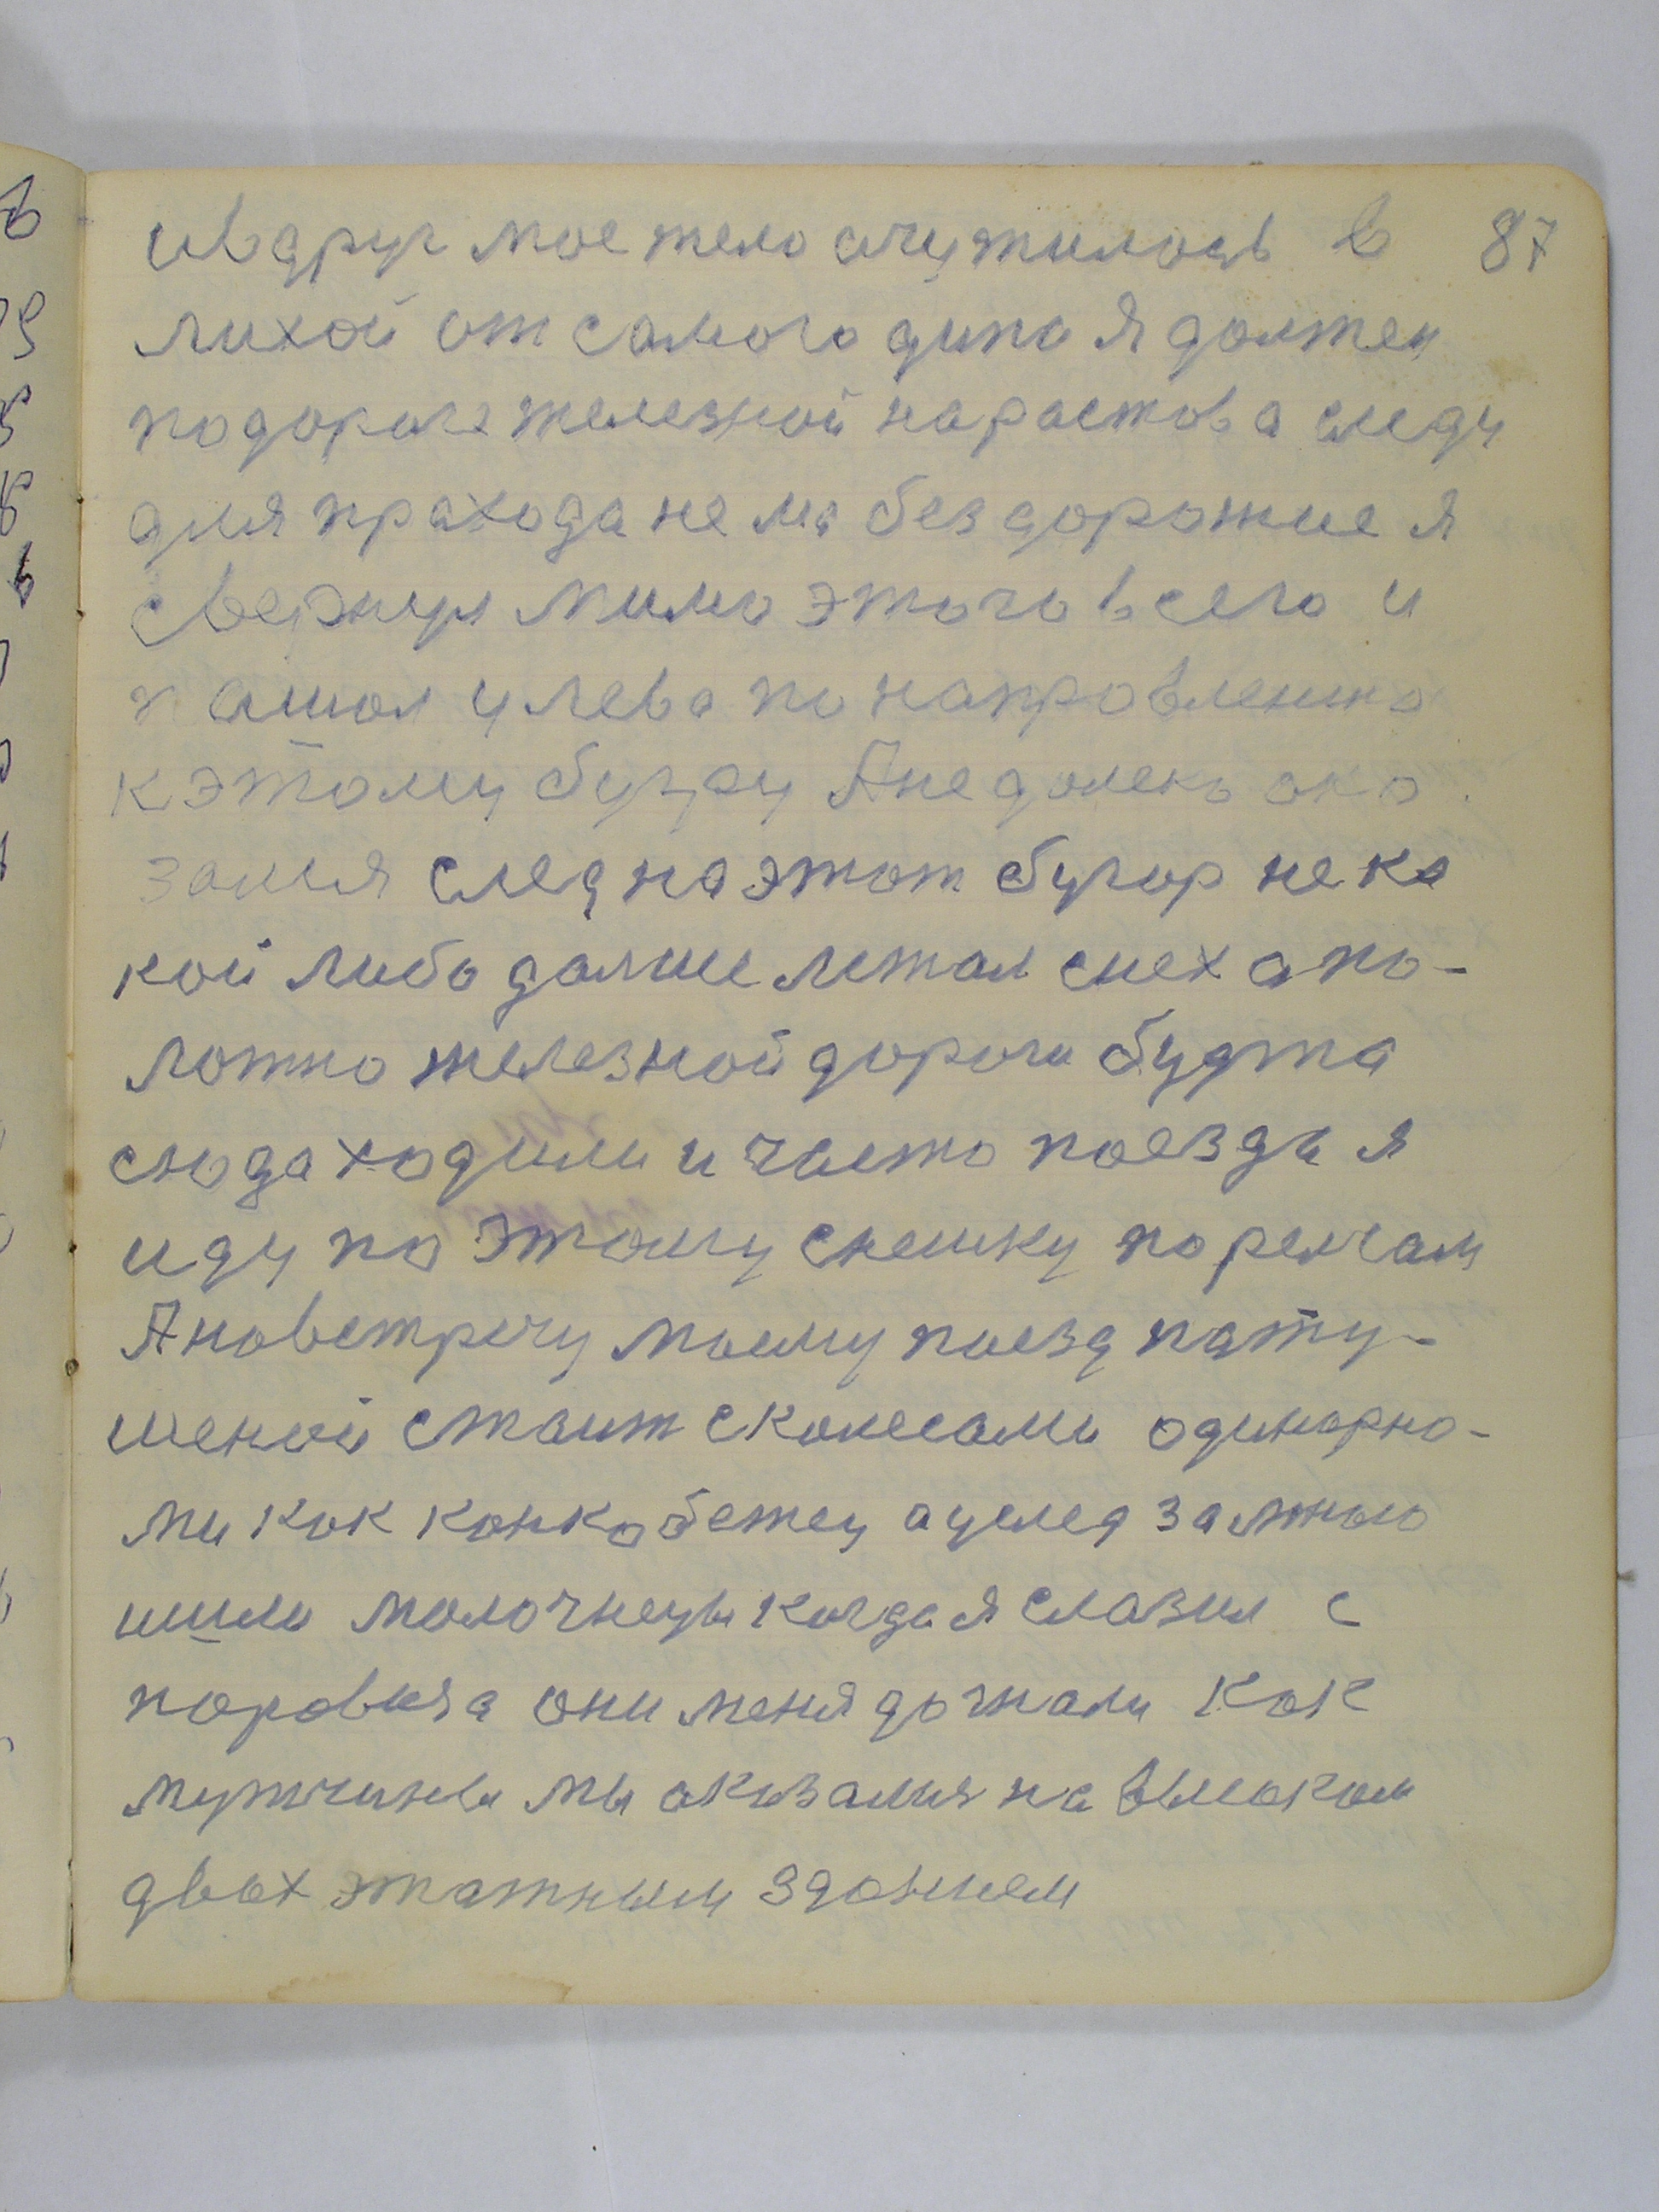 и вдруг мое тело очутилось в 87
лихой от самого дипа я должен
по дороге железной на растова следу
для прахода не ма без дорожие я
свернул мимо этого всего и
пашол у лева по направлению
к этому бугру А не далеко ока
зался след на этот бугор не ка
кой либо далше лежал снех а по-
лотно железной дороги будта
сюда ходили и часто поезда я
иду по этому снешку по релчам
А на встречу моему поезд поту-
шеной стаит с колесами одинарно-
ми как конкобежец а у след за мною
шили молочнецы когда я слазил с
паровоза они меня догнали как
мужчины мы оказался на высоком
двох этажным зданием